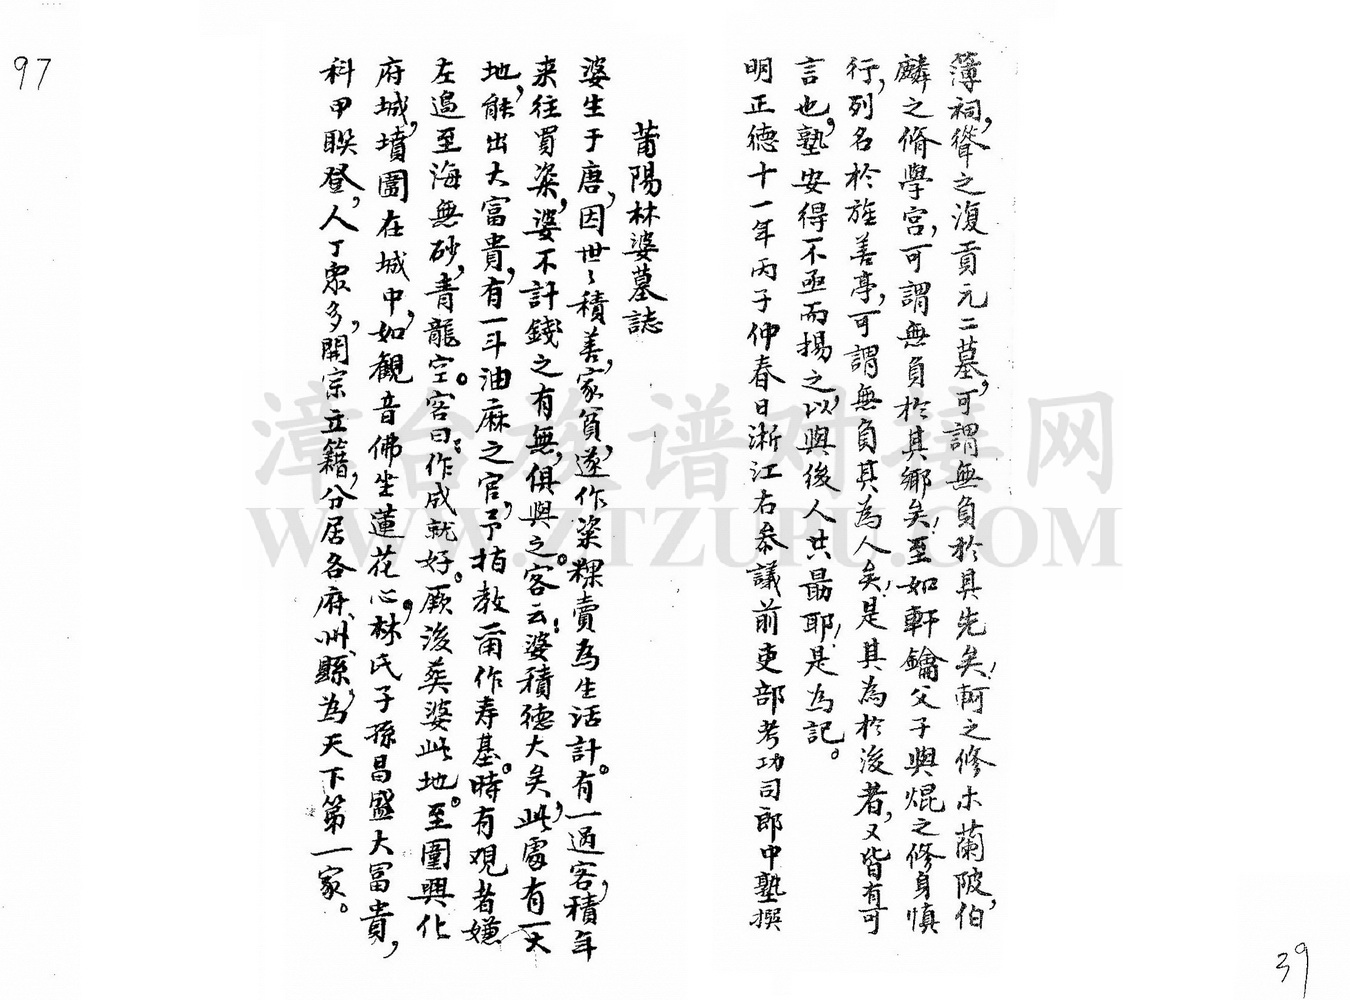 簿祠，聳之復貢元二墓，可謂無負於其先矣！軻之修木蘭陂，伯
麟之脩學宮，可謂無負於其鄉矣！至如軒鑰父子與焜之修身慎
行，列名於旌善亭，可謂無負其為人矣！是其為於後者，又皆有可
言也，塾安得不亟而揚之，以與後人共勗耶！是為記。
明正德十一年丙子仲春日浙江右叅議前吏部考功司郎中塾撰
莆陽林婆墓誌
婆生于唐，因世々積善，家貧，遂作粢粿賣為生活計。有一過客，積年
来往買粢，婆不計錢之有無，俱與之。客云：婆積德大矣，此處有一大
地，能出大富貴，有一斗油麻之官，予指教爾作寿基。時有观者嫌
左邊至海無砂，青龍空。客曰：作成就好。厥後葬婆此地。至圍興化
府城，墳圍在城中，如観音佛坐蓮花心，林氏子孫昌盛大富貴，
科甲聯登，人丁眾多，開宗立籍，分居各府、州、縣，為天下第一家。
97
39
漳台族谱对接网
WWW.ZTZUPU.COM